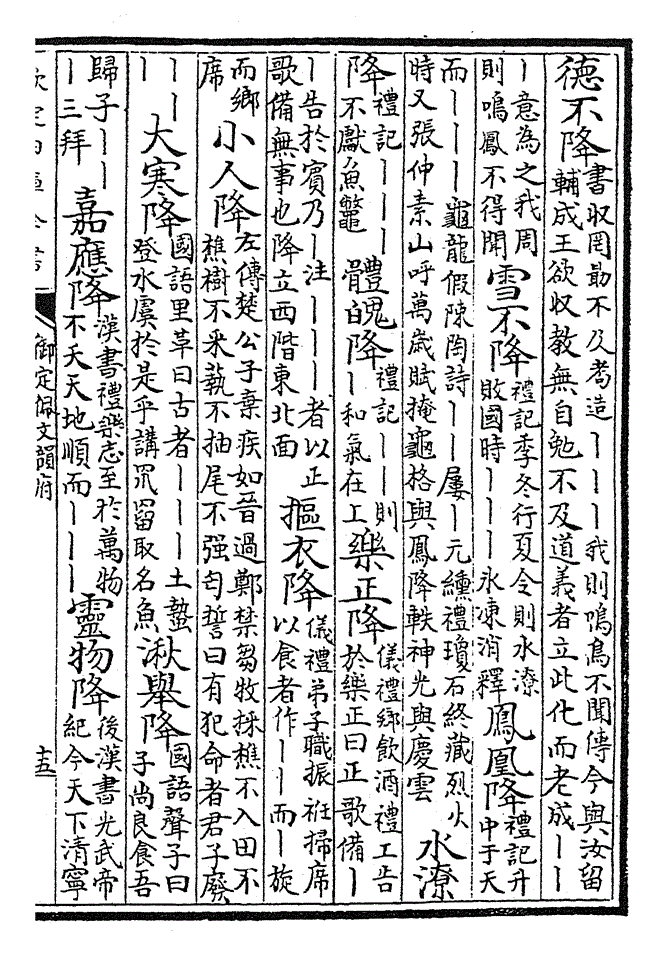 德不降書收罔勗不及耇造丨丨丨我則鳴鳥不聞傳今與汝留輔成王欲收教無自勉不及道義者立此化而老成丨丨
丨意為之我周則鳴鳳不得聞雪不降禮記季冬行夏令則水潦敗國時丨丨丨冰凍消釋鳳凰降禮記升中于天
而丨丨丨丨龜龍假陳陶詩丨丨屢丨元纁禮瓊石終藏烈火時又張仲素山呼萬歲賦掩龜格與鳳降軼神光與慶雲水潦
降禮記丨丨丨不獻魚鼈體魄降禮記丨丨則丨和氣在工樂正降儀禮鄉飲酒禮工告於樂正曰正歌備丨
丨告於賓乃丨注丨丨丨者以正歌備無事也降立西階東北面摳衣降儀禮弟子職振袵掃席以食者作丨丨而丨旋
而鄉席小人降左傳楚公子棄疾如晉過鄭禁芻牧採樵不入田不樵樹不采蓺不抽尾不强匄誓曰有犯命者君子廢
丨丨丨大寒降國語里革曰古者丨丨丨土蟄登水虞於是乎講罛罶取名魚湫舉降國語聲子曰子尚良食吾
歸子丨丨丨三拜嘉應降漢書禮樂志至於萬物不夭天地順而丨丨丨靈物降後漢書光武帝紀今天下清寧
欽定四庫全書 御定佩文韻府 十五